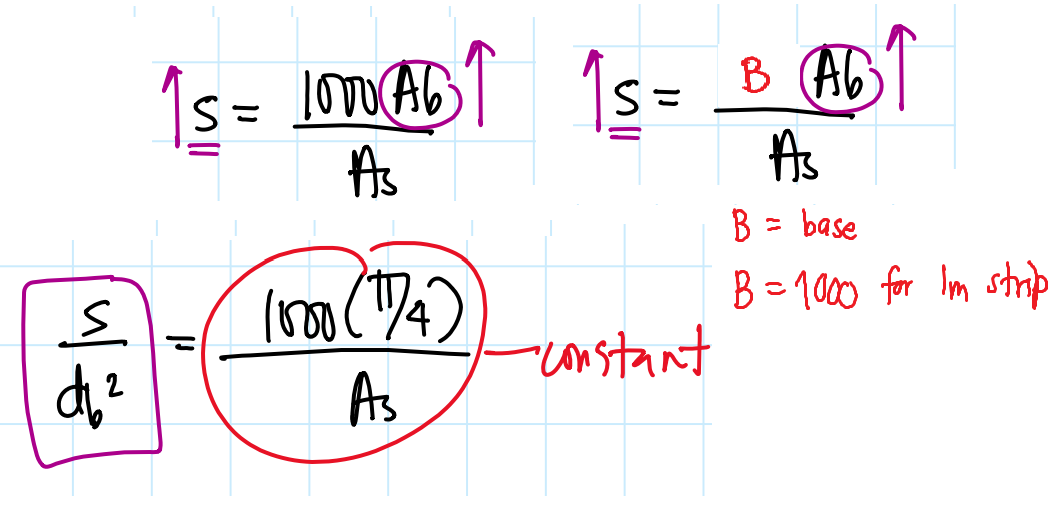 s = 1000 Ab / As
s = B Ab / As
B = base
B = 1000 for 1m strip
s / db² = 1000 (π/4) / As
constant